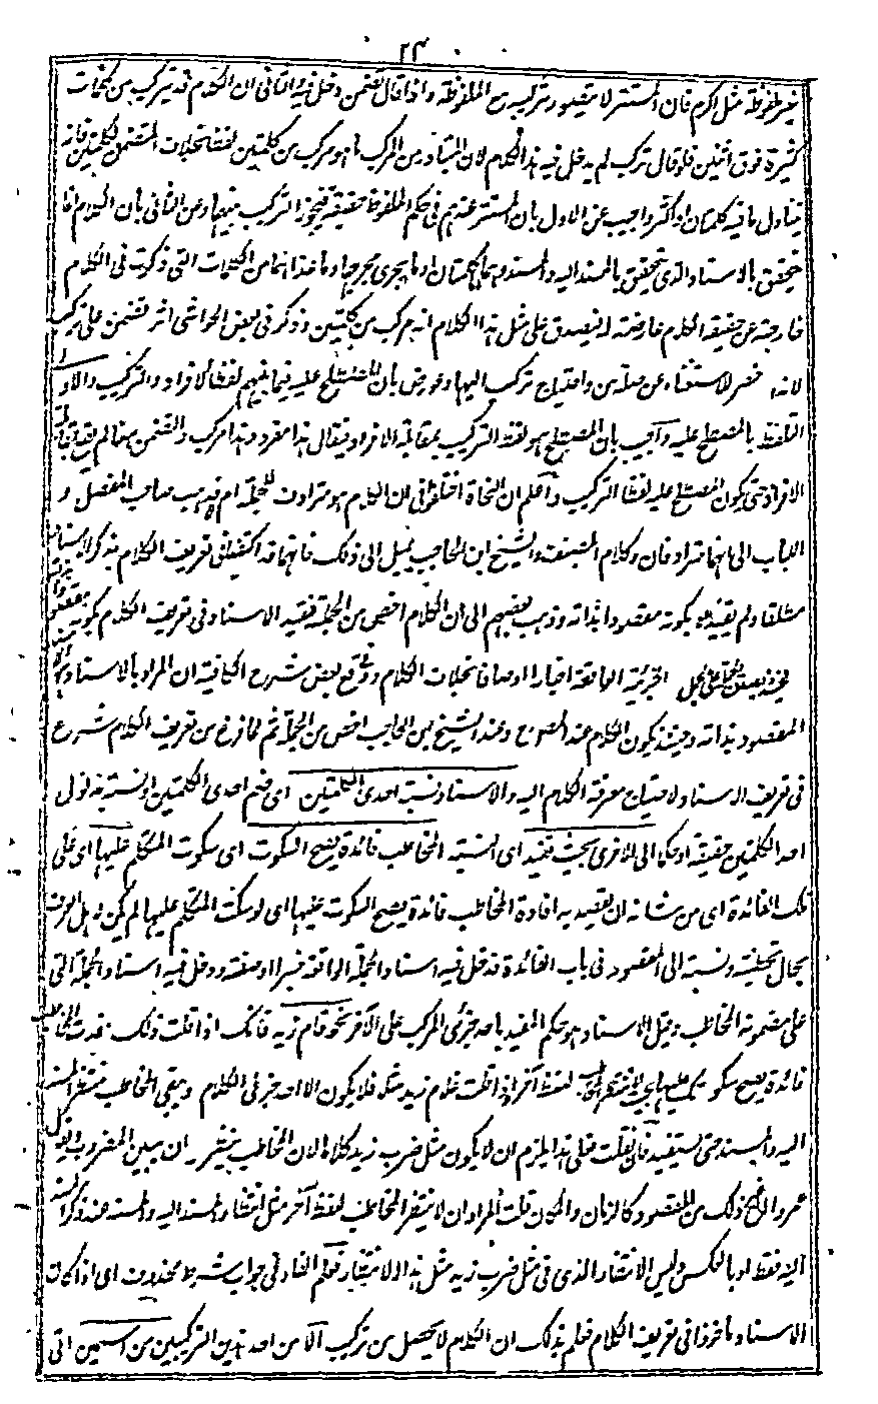 ٢٣
غير ملفوظة مثل اكرم فان المستتر لا يقصد وتركيبه مع الملفوظة واذا قال تضمن دخل فيه والثانى ان الكلام قد يتركب من كلمات
كثيرة فوق اثنين فلو قال تركب لم يدخل فيه هذا الكلام لان المتبادر من المركب انه مركب من كلمتين فقط بخلاف المتضمن لكلمتين فانه
يتناول ما فيه كلمتان او اكثر واجيب عن الاول بان المستتر عندهم فى حكم الملفوظ حقيقة فيجوز التركيب منهما وعن الثانى بان الكلام انما
يتحقق بالاسناد الذى يتحقق بالمسند اليه والمسند وهما كلمتان او ما يجرى مجراهما وما عداهما من الكلمات التى ذكرت فى الكلام
خارجة عن حقيقة الكلام عارضة له فيصدق على مثل هذا الكلام انه مركب من كلمتين وذكر فى بعض الحواشى اثر تضمن على تركب
لانه اخصر لاستغناءه عن صلة من واحتياج تركب اليها وعورض بان المصطلح عليه فيما بينهم لفظ الافراد والتركيب والاولى
التلفظ بالمصطلح عليه واجيب بان المصطلح هو لفظ التركيب بمقابلة الافراد فيقال هذا مفرد وهذا مركب والتضمن ههنا لم يقع بمقابلة
الافراد حتى يكون المصطلح عليه لفظ التركيب واعلم ان النحاة اختلفوا فى ان الكلام هو مترادف للجملة ام لا فذهب صاحب المفصل و
اللباب الى انهما مترادفان وكلام المصنف والشيخ ابن الحاجب يميل الى ذلك فانهما قد اكتفيا فى تعريف الكلام بذكر الاسناد
مطلقا ولم يقيداه بكونه مقصودا لذاته وذهب بعضهم الى ان الكلام اخص من الجملة فقيد الاسناد فى تعريف الكلام بكونه مقصودا
فحينئذ يصدق الجملة على الجمل الخبرية الواقعة اخبارا او اوصافا بخلاف الكلام ووقع فى بعض شروح الكافية ان المراد بالاسناد
المقصود لذاته وحينئذ يكون الكلام عند المصنف وعند الشيخ ابن الحاجب اخص من الجملة ثم لما فرغ من تعريف الكلام شرع
فى تعريف الاسناد لاحتياج معرفة الكلام اليه والاسناد نسبة احدى الكلمتين اى ضم احدى الكلمتين او نسبة مدلول
احد الكلمتين حقيقة او حكما الى الاخرى بحيث تفيد اى النسبة المخاطب فائدة يصح السكوت اى سكوت المتكلم عليها اى على
تلك الفائدة اى من شانه ان يقصد به افادة المخاطب فائدة يصح السكوت عليها اى لو سكت المتكلم عليها لم يكن لاهل العرف
مجال تخطئته ونسبته الى القصور فى باب الفائدة فدخل فيه اسناد الجملة الواقعة خبرا او صفة ودخل فيه اسناد الجملة التى
علم مضمونه المخاطب وقيل الاسناد هو حكم المفيد باحد جزئى المركب على الآخر نحو قام زيد فانك اذا قلت ذلك افدت المخاطب
فائدة يصح سكوتكم عليها بحيث لا ينتظر المخاطب لفظا آخر واذا قلت غلام زيد مثلا فلا يكون الا احد جزئى الكلام ويبقى المخاطب منتظرا للمسند
اليه والمسند حتى يستفيد فان قلت فعلى هذا يلزم ان لا يكون مثل ضرب زيد كلاما لان المخاطب ينتظر ان يبين المضروب ويقول
عمروا الى غير ذلك من المقصود كالزمان والمكان قلت المراد ان لا ينتظر المخاطب لفظا آخر مثل انتظار المسند اليه والمسند عند ذكر المسند
اليه فقط او بالعكس وليس الانتظار الذى فى مثل ضرب زيد مثل هذا الانتظار فعلم الفاء فى جواب شرط محذوف اى اذا كان
الاسناد ماخوذا فى تعريف الكلام فعلم بذلك ان الكلام لا يحصل من تركيب الا من احد هذين التركيبين من اسمين اتى